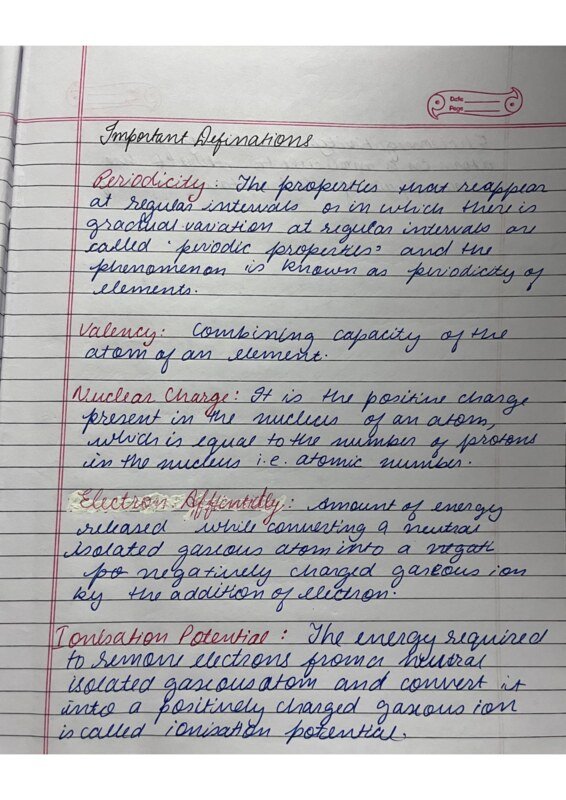 Date
Page
Important Definations
Periodicity: The properties that reappear
at regular intervals or in which there is
gradual variation at regular intervals are
called 'periodic properties' and the
phenomenon is known as periodicity of
elements.
Valency: Combining capacity of the
atom of an element.
Nuclear Charge: It is the positive charge
present in the nucleus of an atom,
which is equal to the number of protons
in the nucleus i.e. atomic number.
Electron : Amount of energy
released while converting a neutral
isolated gaseous atom into a negati
po negatively charged gaseous ion
by the addition of electron.
Ionisation Potential: The energy required
to remove electrons from a neutral
isolated gaseous atom and convert it
into a positively charged gaseous ion
is called ionisation potential.